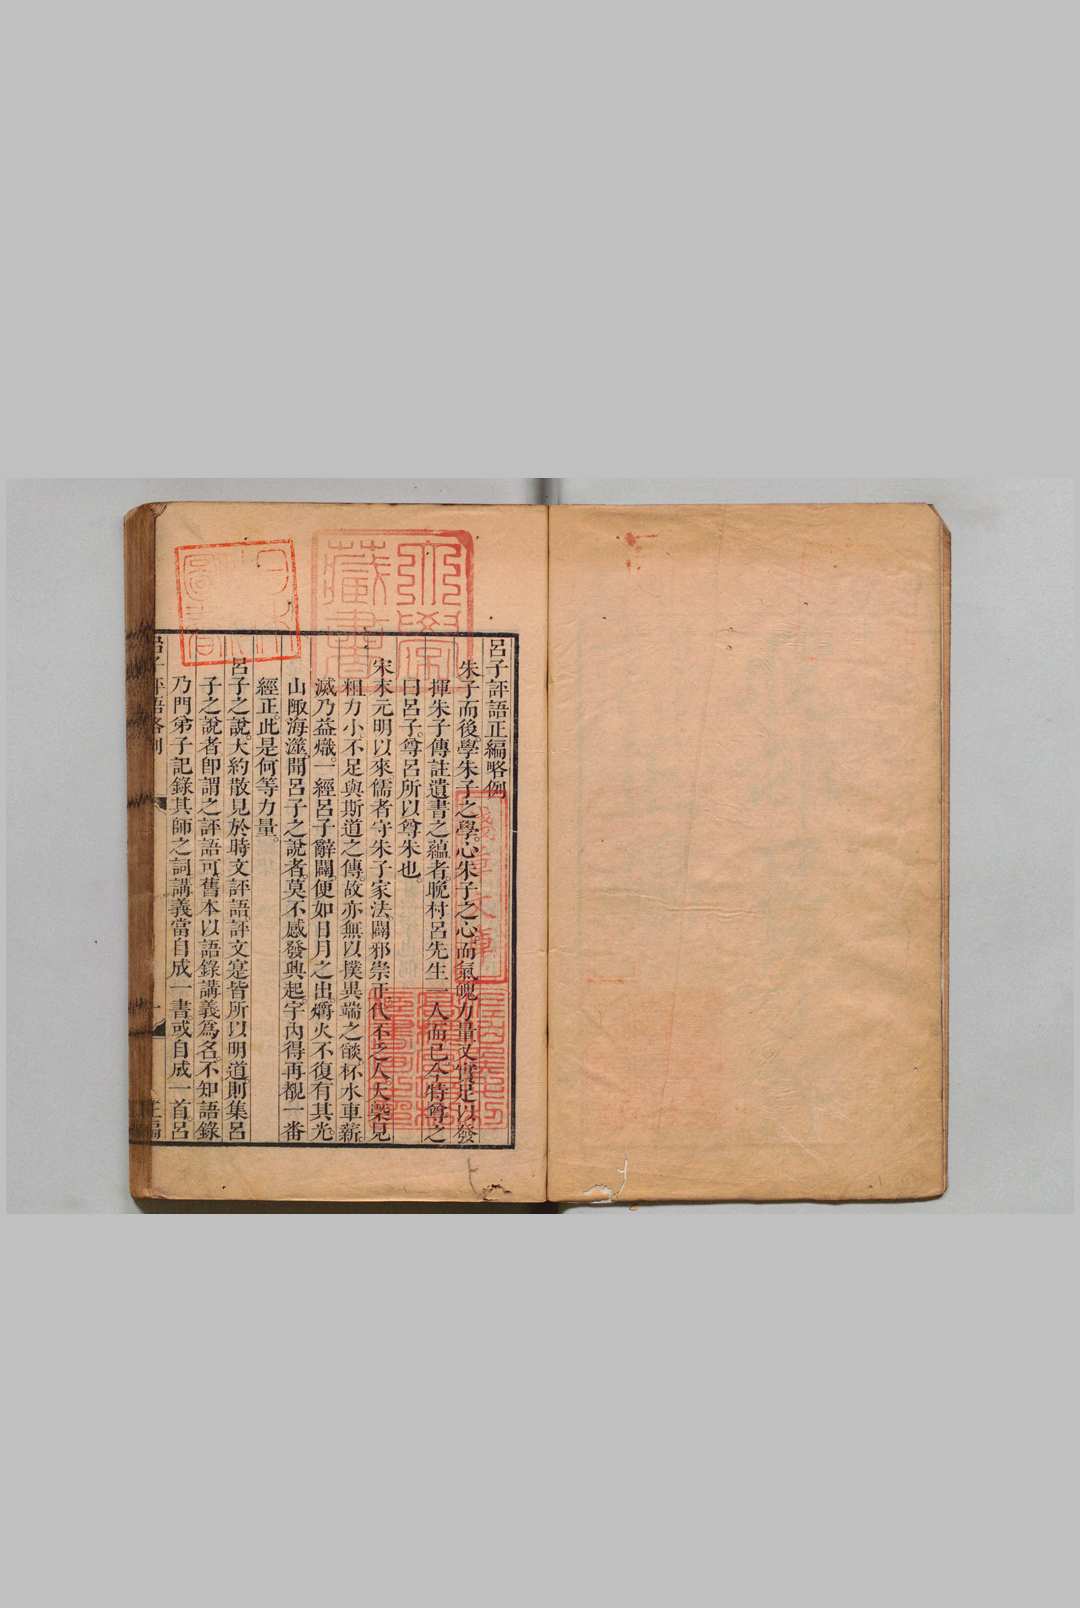 呂子評語正編略例
朱子而後。學朱子之學。心朱子之心而氣魄力量又實足以發
揮朱子傳註遺書之蘊者晚村呂先生一人而已今特尊之
曰呂子。尊呂所以尊朱也。
宋末元明以來儒者守朱子家法。闢邪崇正。代不乏人。大槩見
粗力小不足與斯道之傳故亦無以撲異端之燄杯水車薪。
滅乃益熾。一經呂子辭闢便如日月之出。爝火不復有其光。
山陬海澨聞呂子之說者。莫不感發興起。宇內得再覩一番
經正。此是何等力量。
呂子之說。大約散見於時文評語。評文寔皆所以明道。則集呂
子之說者卽謂之評語可。舊本以語錄講義爲名。不知語錄
乃門弟子記錄其師之詞。講義當自成一書或自成一首。呂
呂子評語略例
正編
藏書